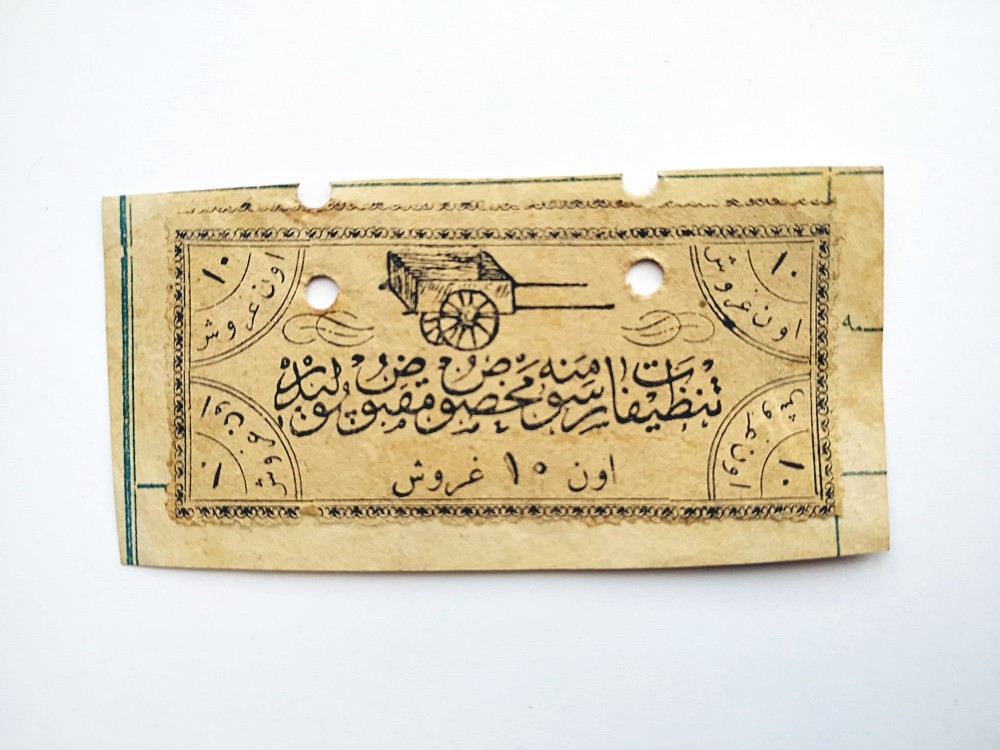 ١٠
اون غروش
١٠
اون غروش
تنظيفات رسومنه مخصوص مقبوض پوليدر
اون ١٠ غروش
١٠
اون غروش
١٠
اون غروش